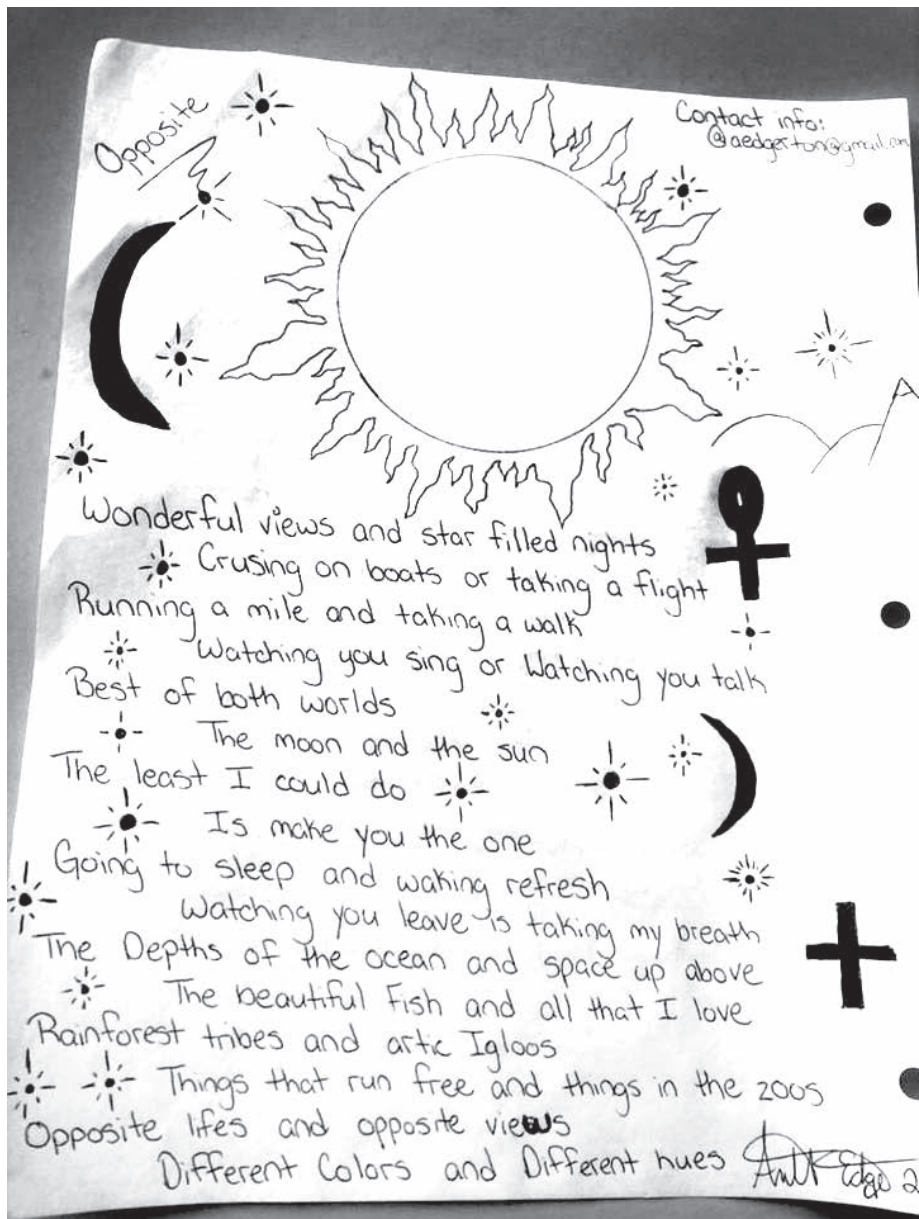 Opposite
Contact info:
@aedgerton@gmail.com
Wonderful views and star filled nights
Crusing on boats or taking a flight
Running a mile and taking a walk
Watching you sing or Watching you talk
Best of both worlds
The moon and the sun
The least I could do
Is make you the one
Going to sleep and waking refresh
Watching you leave is taking my breath
The Depths of the ocean and space up above
The beautiful Fish and all that I love
Rainforest tribes and artic Igloos
Things that run free and things in the zoos
Opposite lifes and opposite views
Different Colors and Different hues